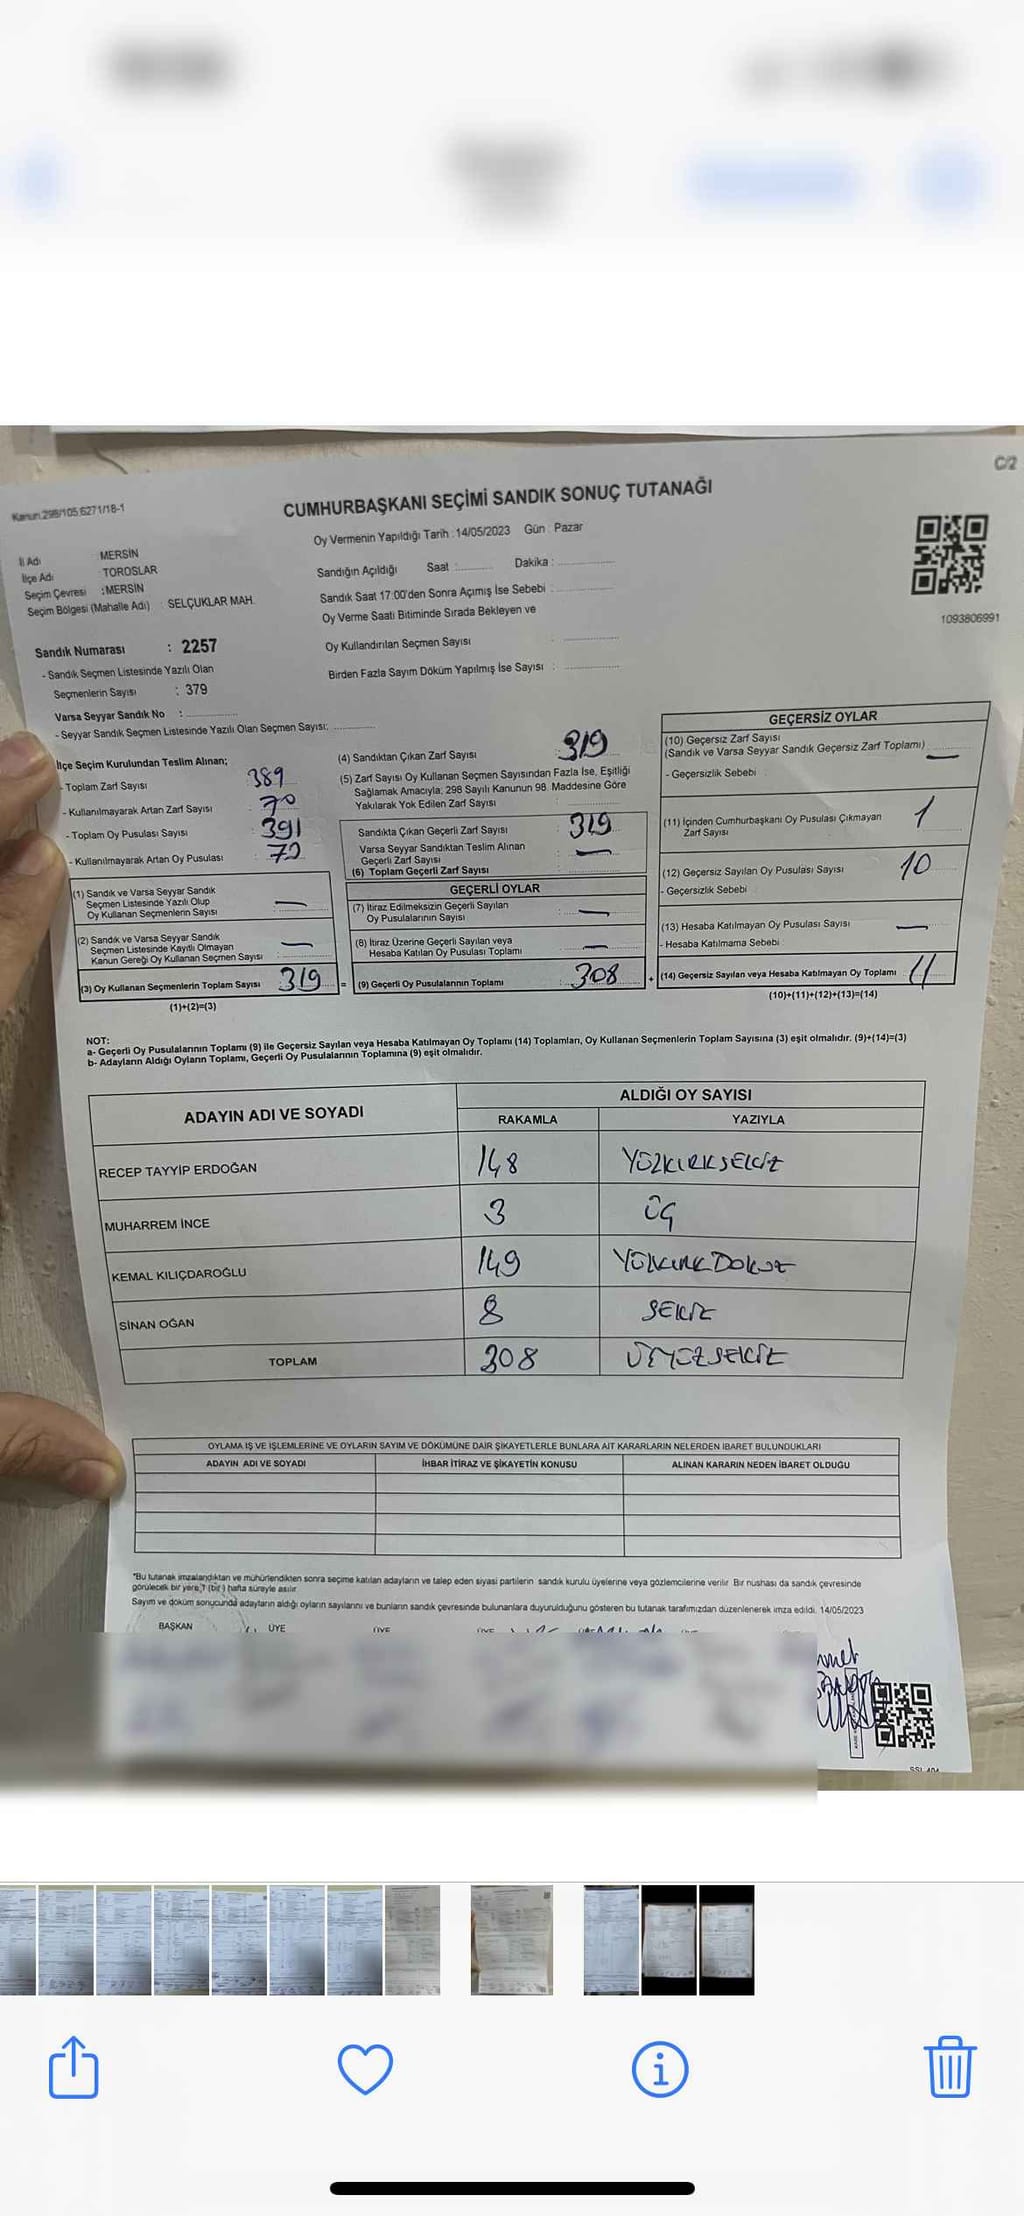 C/2
Kanun:298/105,6271/18-1
CUMHURBAŞKANI SEÇİMİ SANDIK SONUÇ TUTANAĞI
Oy Vermenin Yapıldığı Tarih : 14/05/2023 Gün : Pazar
İl Adı MERSİN
İlçe Adı : TOROSLAR
Seçim Çevresi : MERSİN
Seçim Bölgesi (Mahalle Adı) : SELÇUKLAR MAH.
Sandığın Açıldığı Saat : Dakika :
Sandık Saat 17:00'den Sonra Açımış İse Sebebi :
Oy Verme Saati Bitiminde Sırada Bekleyen ve
Oy Kullandırılan Seçmen Sayısı :
Birden Fazla Sayım Döküm Yapılmış İse Sayısı :
1093806991
Sandık Numarası : 2257
- Sandık Seçmen Listesinde Yazılı Olan
Seçmenlerin Sayısı : 379
Varsa Seyyar Sandık No :
- Seyyar Sandık Seçmen Listesinde Yazılı Olan Seçmen Sayısı:
İlçe Seçim Kurulundan Teslim Alınan;
- Toplam Zarf Sayısı 389
- Kullanılmayarak Artan Zarf Sayısı 70
- Toplam Oy Pusulası Sayısı 391
- Kullanılmayarak Artan Oy Pusulası : 72
(1) Sandık ve Varsa Seyyar Sandık
Seçmen Listesinde Yazılı Olup
Oy Kullanan Seçmenlerin Sayısı —
(2) Sandık ve Varsa Seyyar Sandık
Seçmen Listesinde Kayıtlı Olmayan
Kanun Gereği Oy Kullanan Seçmen Sayısı —
(3) Oy Kullanan Seçmenlerin Toplam Sayısı 319 =
(1)+(2)=(3)
(4) Sandıktan Çıkan Zarf Sayısı : 319
(5) Zarf Sayısı Oy Kullanan Seçmen Sayısından Fazla İse, Eşitliği
Sağlamak Amacıyla; 298 Sayılı Kanunun 98. Maddesine Göre
Yakılarak Yok Edilen Zarf Sayısı :
Sandıkta Çıkan Geçerli Zarf Sayısı : 319
Varsa Seyyar Sandıktan Teslim Alınan
Geçerli Zarf Sayısı : —
(6) Toplam Geçerli Zarf Sayısı
GEÇERLİ OYLAR
(7) İtiraz Edilmeksizin Geçerli Sayılan
Oy Pusulalarının Sayısı : —
(8) İtiraz Üzerine Geçerli Sayılan veya
Hesaba Katılan Oy Pusulası Toplamı : —
(9) Geçerli Oy Pusulalarının Toplamı : 308 +
GEÇERSİZ OYLAR
(10) Geçersiz Zarf Sayısı
(Sandık ve Varsa Seyyar Sandık Geçersiz Zarf Toplamı) —
- Geçersizlik Sebebi
(11) İçinden Cumhurbaşkanı Oy Pusulası Çıkmayan
Zarf Sayısı 1
(12) Geçersiz Sayılan Oy Pusulası Sayısı 10
- Geçersizlik Sebebi
(13) Hesaba Katılmayan Oy Pusulası Sayısı —
- Hesaba Katılmama Sebebi
(14) Geçersiz Sayılan veya Hesaba Katılmayan Oy Toplamı 11
(10)+(11)+(12)+(13)=(14)
NOT:
a- Geçerli Oy Pusulalarının Toplamı (9) ile Geçersiz Sayılan veya Hesaba Katılmayan Oy Toplamı (14) Toplamları, Oy Kullanan Seçmenlerin Toplam Sayısına (3) eşit olmalıdır. (9)+(14)=(3)
b- Adayların Aldığı Oyların Toplamı, Geçerli Oy Pusulalarının Toplamına (9) eşit olmalıdır.
ADAYIN ADI VE SOYADI ALDIĞI OY SAYISI
RAKAMLA YAZIYLA
RECEP TAYYİP ERDOĞAN 148 YÜZKIRKSEKİZ
MUHARREM İNCE 3 ÜÇ
KEMAL KILIÇDAROĞLU 149 YÜZKIRKDOKUZ
SİNAN OĞAN 8 SEKİZ
TOPLAM 308 ÜÇYÜZSEKİZ
OYLAMA İŞ VE İŞLEMLERİNE VE OYLARIN SAYIM VE DÖKÜMÜNE DAİR ŞİKAYETLERLE BUNLARA AİT KARARLARIN NELERDEN İBARET BULUNDUKLARI
ADAYIN ADI VE SOYADI İHBAR İTİRAZ VE ŞİKAYETİN KONUSU ALINAN KARARIN NEDEN İBARET OLDUĞU
"Bu tutanak imzalandıktan ve mühürlendikten sonra seçime katılan adayların ve talep eden siyasi partilerin sandık kurulu üyelerine veya gözlemcilerine verilir. Bir nushası da sandık çevresinde
görülecek bir yere 1 (bir) hafta süreyle asılır.
Sayım ve döküm sonucunda adayların aldığı oyların sayılarını ve bunların sandık çevresinde bulunanlara duyurulduğunu gösteren bu tutanak tarafımızdan düzenlenerek imza edildi. 14/05/2023
BAŞKAN ÜYE ÜYE ÜYE